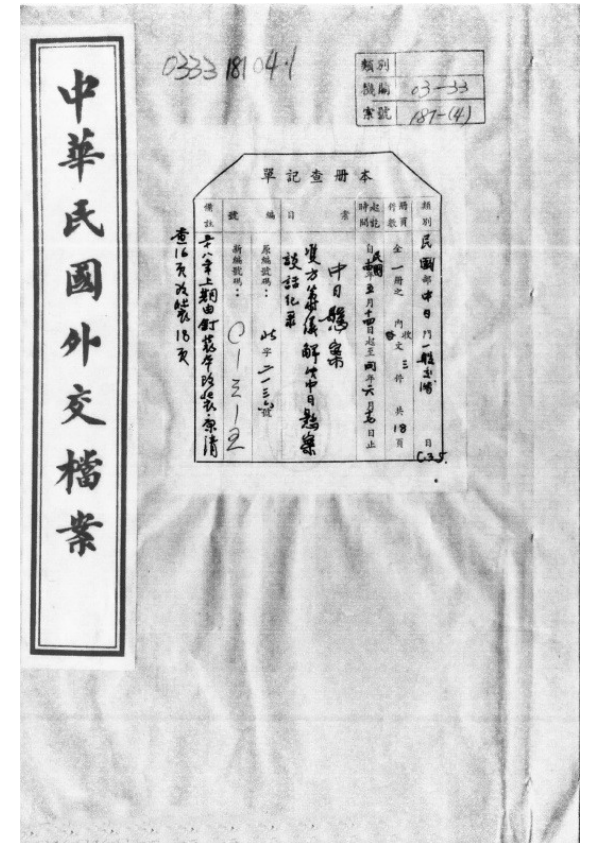 中華民國外交檔案
0333 181 04.1
類別
機關 03-33
案號 181-(4)
本册查記單
類別 民國部中日門一般交涉目 C35.
册頁件數 全一册之內收發文三件共18頁
起訖時間 自民國年五月十四日起至同年六月 日止
案目 中日懸案
雙方籌議解決中日懸案
談話紀錄
編號 原編號碼：此字二一三六號
新編號碼：C-3-2
備註 廿八年上期由釘裝本改裝·原清
查16頁改裝18頁